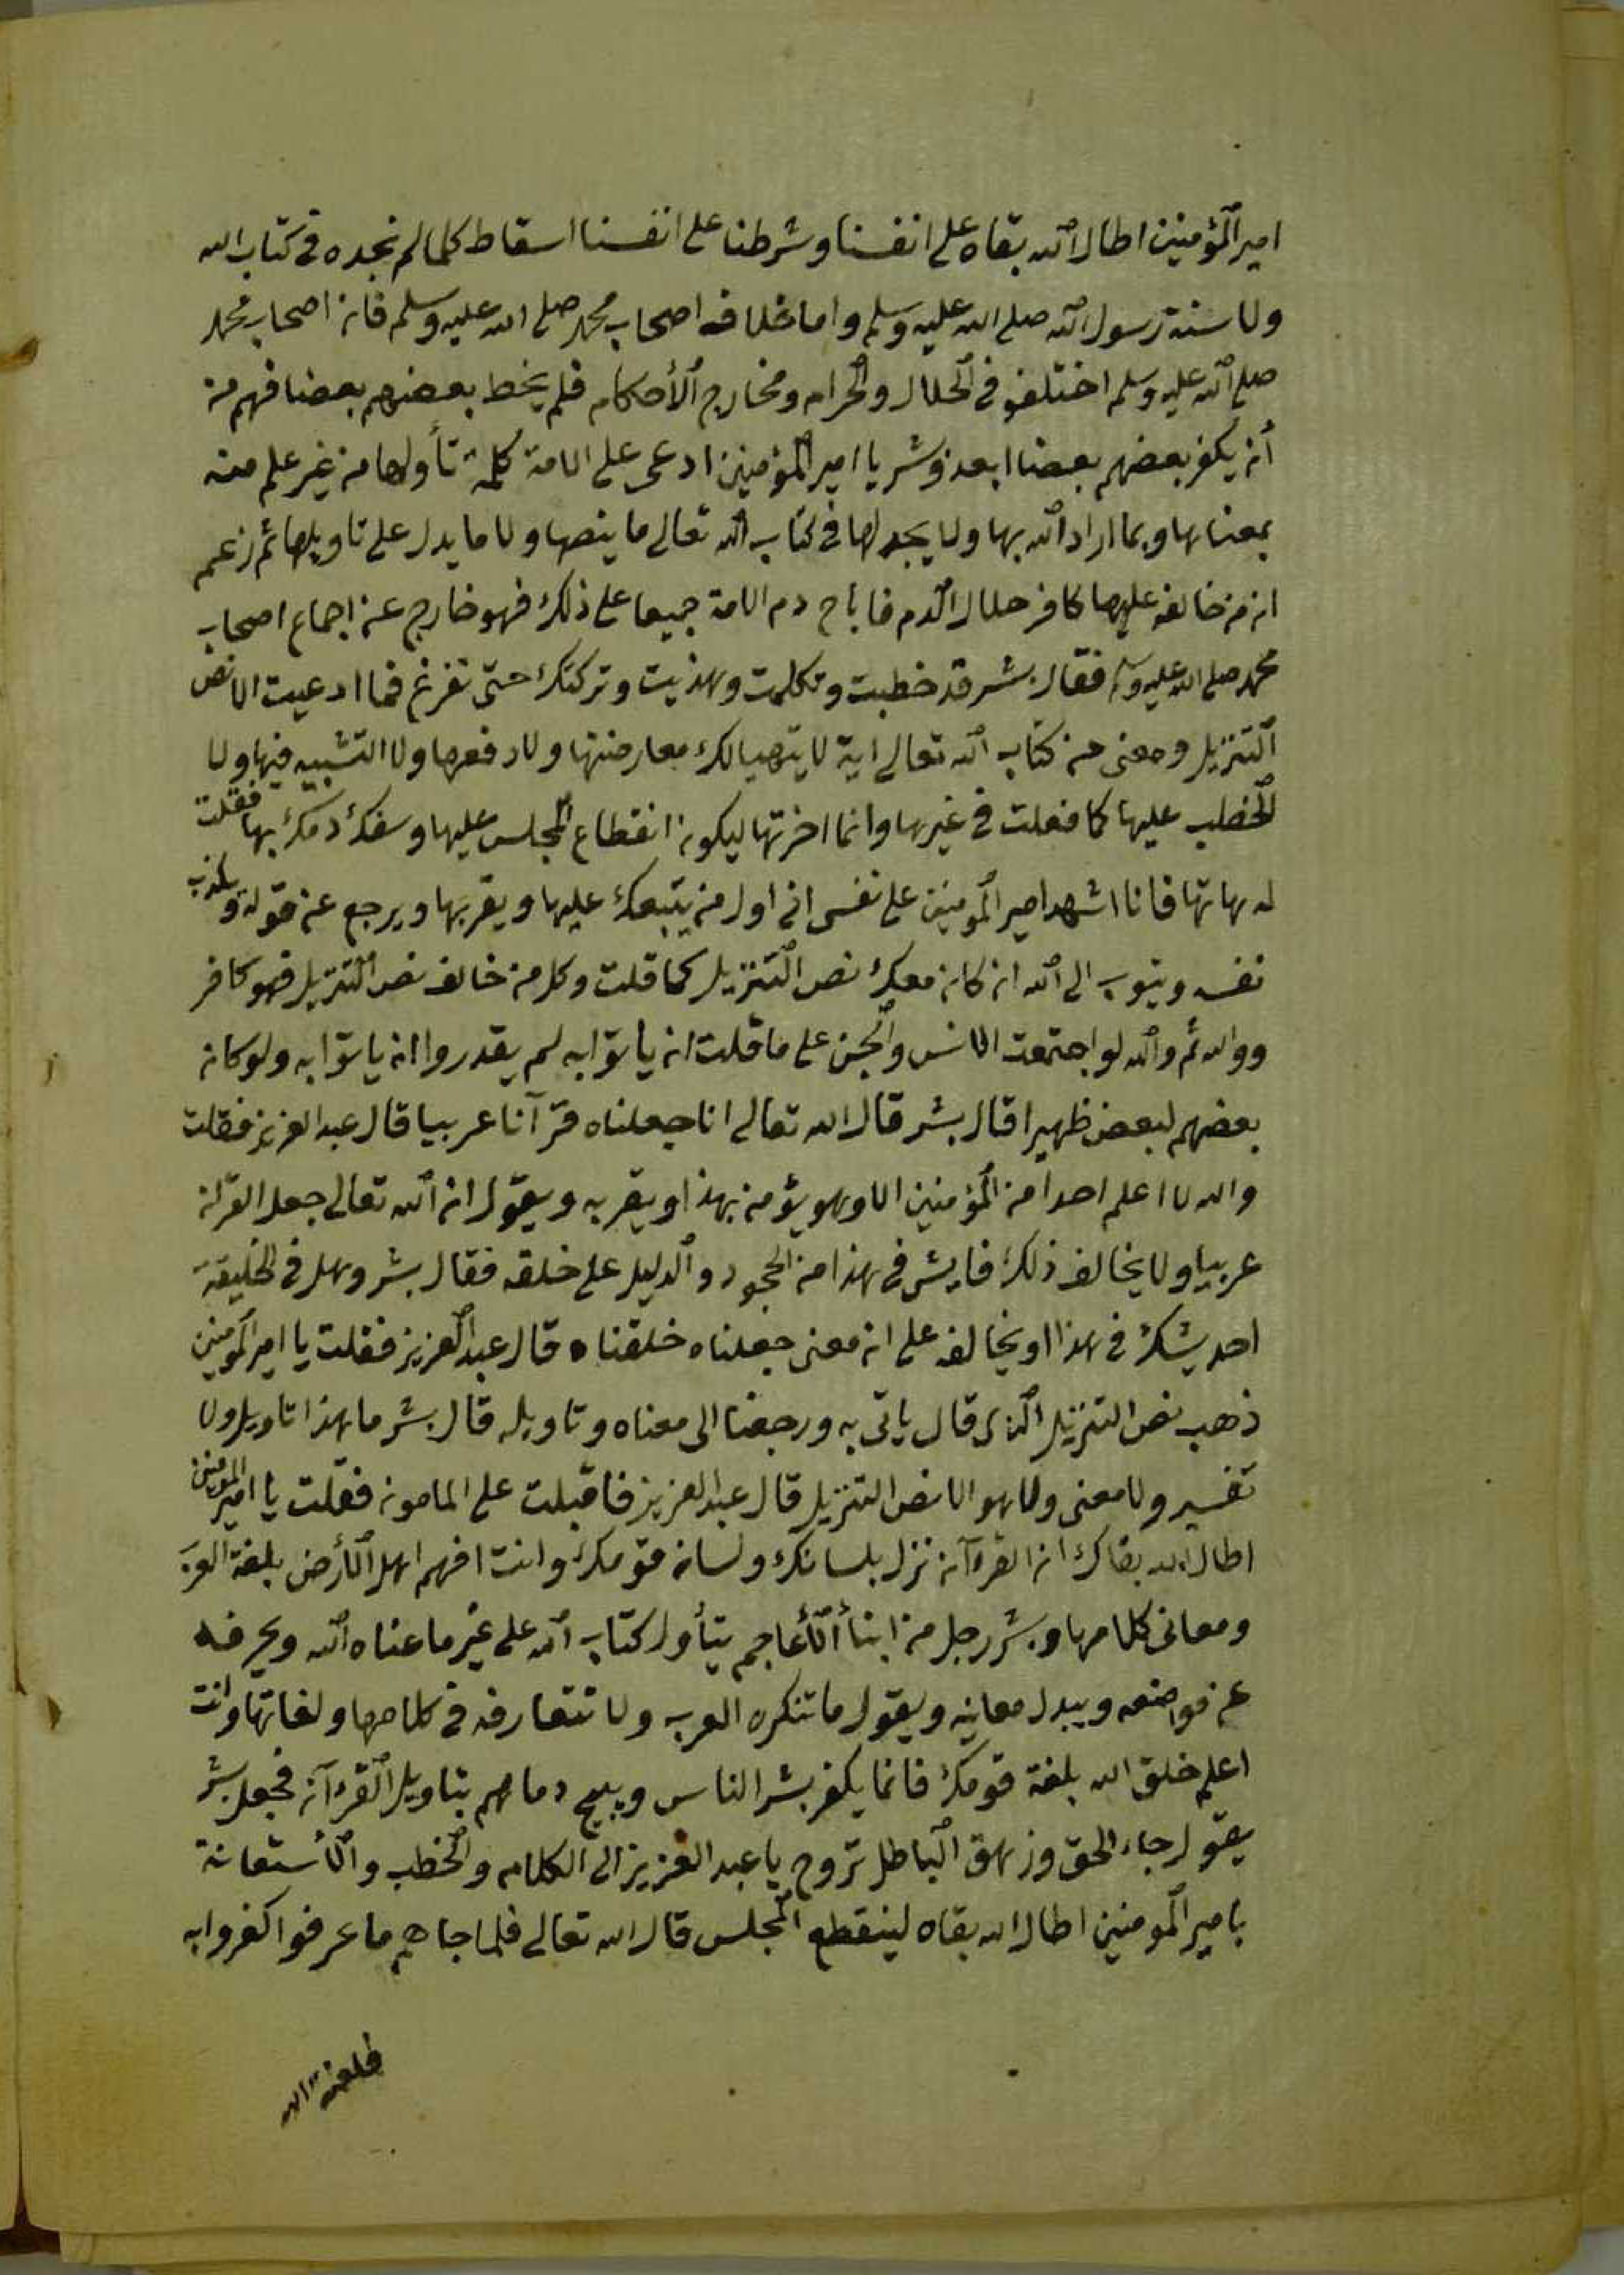 امير المؤمنين اطال الله بقاه على انفسنا وشرطنا على انفسنا اسقاط كلما لم نجده في كتاب الله
ولا سنة رسول الله صلى الله عليه وسلم واما خلافه اصحاب محمد صلى الله عليه وسلم فان اصحاب محمد
صلى الله عليه وسلم اختلفو في الحلال والحرام ومخارج الأحكام فلم يخط بعضهم بعضا فهم من
أن يكفر بعضهم بعضا ابعد وبشر يا امير المؤمنين ادعى على الامة كلمة تأولها من غير علم منه
بمعناها وبما اراد الله بها ولا يجد لها في كتاب الله تعالى ما ينصها ولا ما يدل على تاويلها ثم زعم
ان من خالفه عليها كافر حلال الدم فاباح دم الامة جميعا على ذلك فهو خارج عن اجماع اصحاب
محمد صلى الله عليه وسلم فقال بشر قد خطبت وتكلمت وهذيت وتركتك حتى تفرغ فما ادعيت الا نص
التنزيل ومعنى من كتاب الله تعالى اية لا يتهيا لك معارضتها ولا دفعها ولا التشبيه فيها ولا
الخطب عليها كما فعلت في غيرها وانما اخرتها ليكون انقطاع المجلس عليها وسفك دمك بها فقلت
له هاتها فانا اشهد امير المومنين على نفسى اني اول من يتبعك عليها ويقر بها ويرجع عن قوله ويكذب
نفسه ويتوب الى الله ان كان معك نص التنزيل كما قلت وكل من خالف نص التنزيل فهو كافر
ووالله ثم والله لو اجتمعت الانس والجن على ما قلت ان ياتوا به لم يقدروا ان ياتوا به ولو كان
بعضهم لبعض ظهيرا قال بشر قال الله تعالى انا جعلناه قرآنا عربيا قال عبد العزيز فقلت
والله لا اعلم احدا من المؤمنين الا وهو يؤمن بهذا ويقر به ويقول ان الله تعالى جعل القران
عربيا ولا يخالف ذلك فايش في هذا من الحجود والدليل على خلقه فقال بشر وهل في الخليقة
احد يشك في هذا او يخالف على ان معنى جعلناه خلقناه قال عبد العزيز فقلت يا امير المؤمنين
ذهب نص التنزيل الذى قال ياتى به ورجعنا الى معناه وتاويله قال بشر ما هذا تاويل ولا
تفسير ولا معنى ولا هو الا نص التنزيل قال عبد العزيز فاقبلت على المامون فقلت يا امير المومنين
اطال الله بقاك ان القرءآن نزل بلسانك ولسان قومك وانت افهم اهل الأرض بلغة العرب
ومعانى كلامها وبشر رجل من ابنأ الأعاجم يتأول كتاب الله على غير ما عناه الله ويحرفه
عن مواضعه ويبدل معانيه ويقول ما تنكره العرب ولا تتعارفه في كلامها ولغاتها وانت
اعلم خلق الله بلغة قومك فانما يكفر بشر الناس ويبيح دماهم بتاويل القرءآن فجعل بشر
يقول جاء الحق وزهق الباطل تروح يا عبد العزيز الى الكلام والخطب والأستعانة
بامير المومنين اطال الله بقاه لينقطع المجلس قال الله تعالى فلما جاهم ما عرفوا كفروا به
فلعنة الله